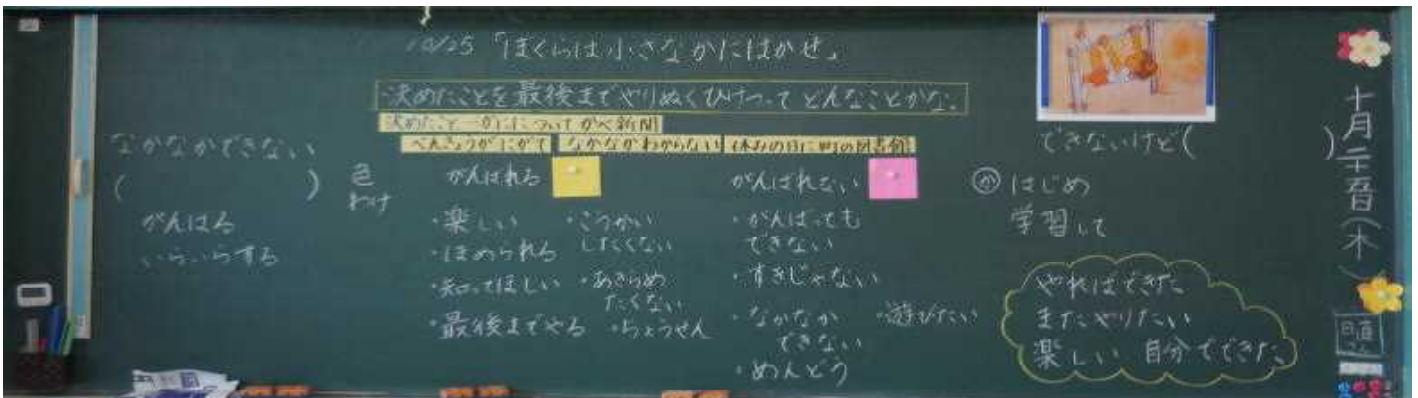 10/25 「ぼくらは小さなかにはかせ」
決めたことを最後までやりぬくひけつって どんなことかな。
決めたこと―かにについてかべ新聞
べんきょうがにがて
なかなかわからない
休みの日に町の図書館
なかなかできない
(　　　　)
がんばる
いらいらする
色
わけ
がんばれる
・楽しい
・ほめられる
・知ってほしい
・最後までやる
・こうかい
したくない
・あきらめ
たくない
・ちょうせん
がんばれない
・がんばっても
できない
・すきじゃない
・なかなか
できない
・めんどう
・遊びたい
できないけど(　　　　)
か はじめ
学習して
やればできた
またやりたい
楽しい 自分でできた
十月二十五日(木)
日直
さん